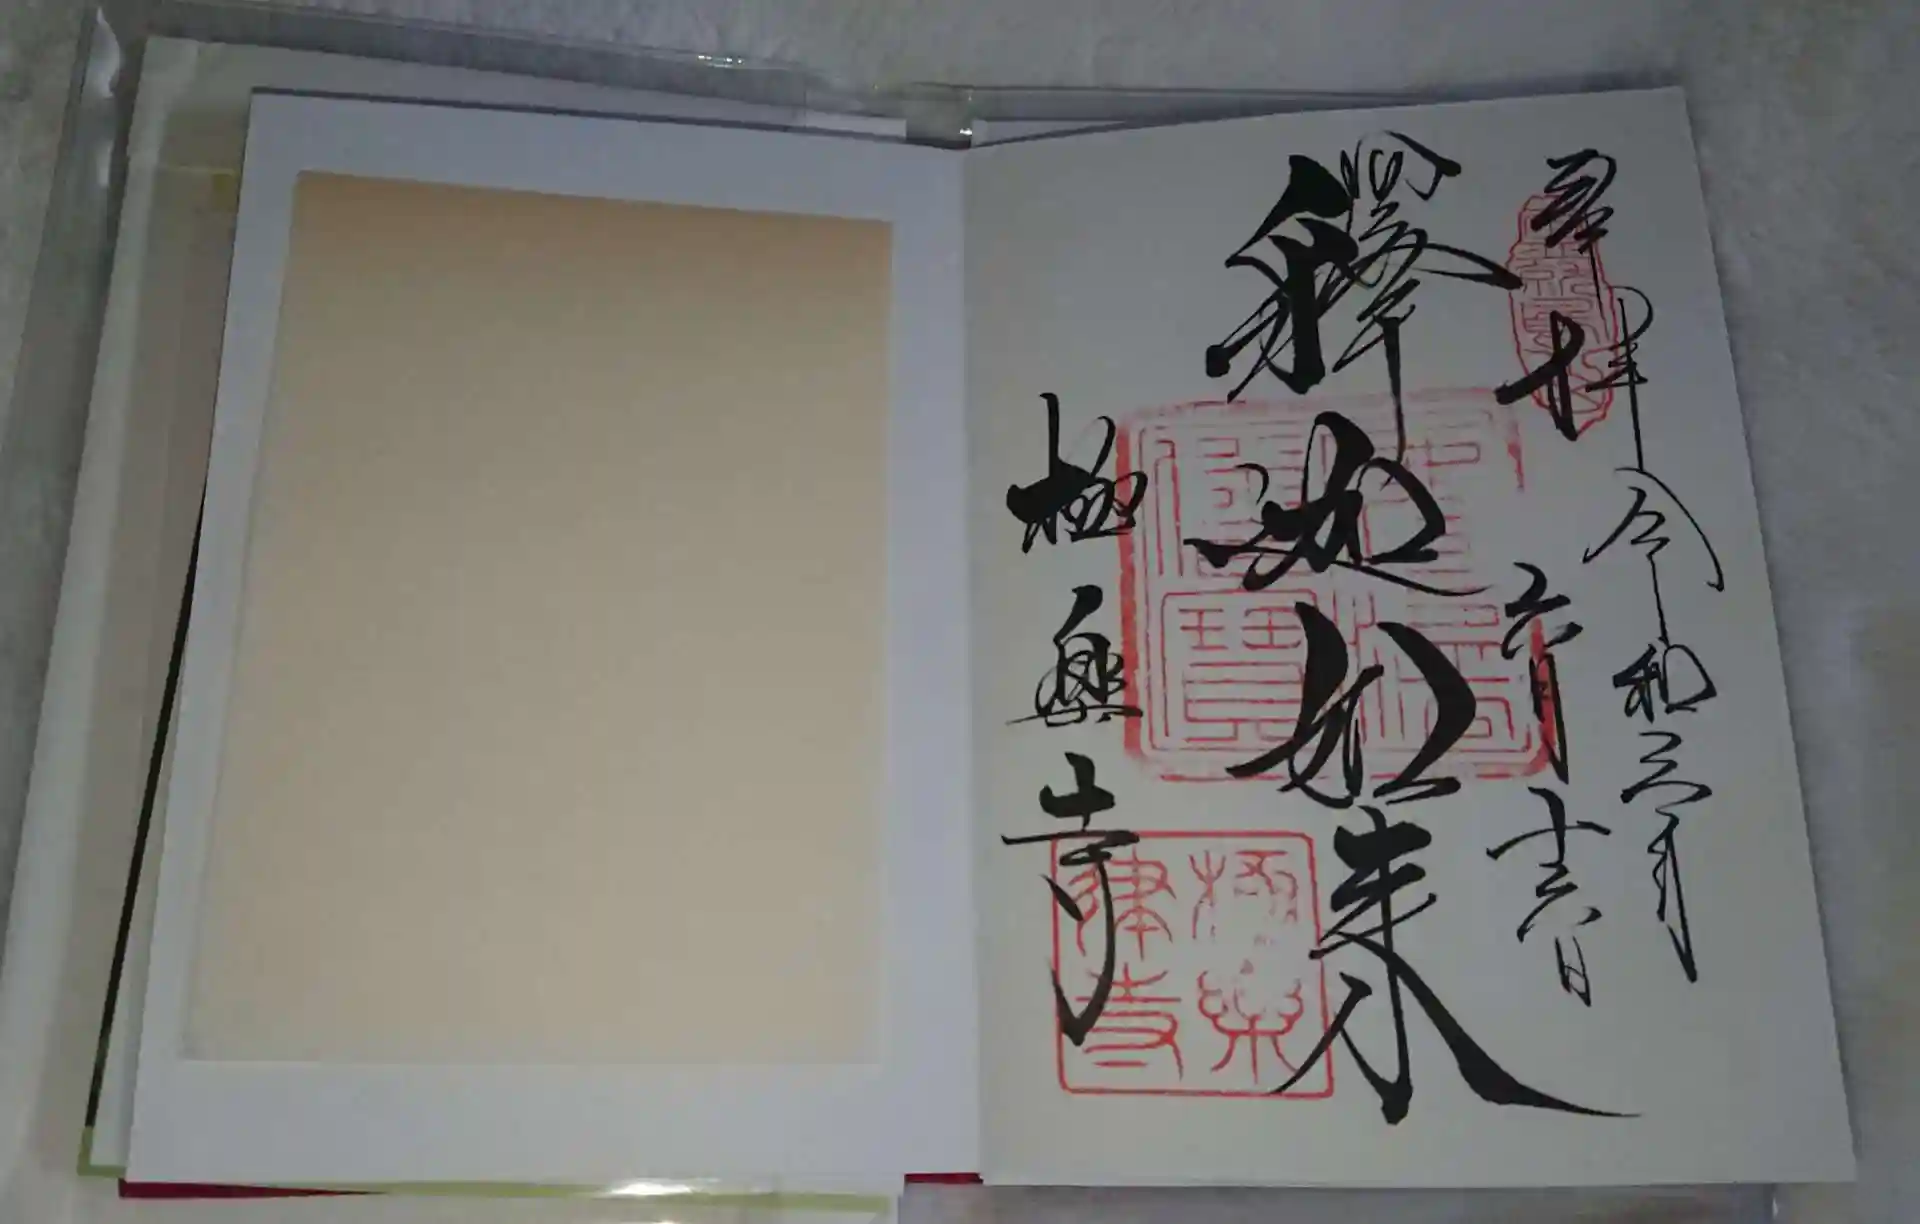 奉拝 令和三年
六月十六日
釋迦如来
極樂寺
極樂律寺